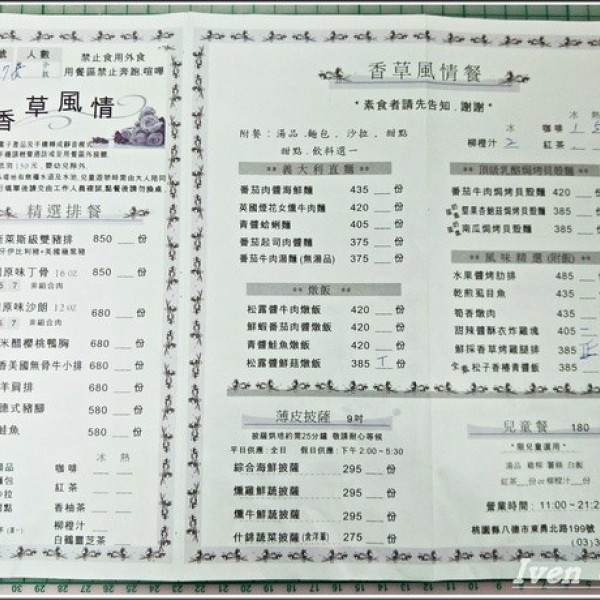 號 人數
禁止食用外食
用餐區禁止奔跑.喧嘩
香草風情
精選排餐
菜斯級雙豬排 850 份
原味丁骨 16 oz 850 份
非組合肉
原味沙朗 12 oz 680 份
非組合肉
米醋櫻桃鴨胸 680 份
香美國無骨牛小排 680 份
羊肩排 680 份
德式豬腳 580 份
鮭魚 580 份
冰 熱
咖啡
紅茶
香柚茶
柳橙汁
白鶴靈芝茶
香草風情餐
*素食者請先告知.謝謝*
附餐:湯品.麵包、沙拉、甜點
甜點.飲料選一
冰 熱
咖啡
柳橙汁 2 紅茶
** 義大利直麵 **
番茄肉醬海鮮麵 435 份
英國煙花女燻牛肉麵 420 份
青醬蛤蜊麵 405 份
番茄起司肉醬麵 375 份
番茄牛肉湯麵(無湯品) 375 份
** 燉飯 **
松露醬牛肉燉飯 420 份
鮮蝦番茄肉醬燉飯 420 份
青醬鮭魚燉飯 420 份
松露醬鮮菇燉飯 385 份
頂級乳酪焗烤貝殼麵
番茄牛肉焗烤貝殼麵 420 份
堅果杏鮑菇焗烤貝殼麵 385 份
南瓜焗烤貝殼麵 385 份
** 風味精選(附飯) **
水果醬烤肋排 485 份
乾煎虱目魚 435
筍香燉肉 435
甜辣醬酥衣炸雞塊 405
鮮採香草烤雞腿排 385
松子香椿青醬飯 385
薄皮披薩 9吋
披薩烘培約需25分鐘 敬請耐心等候
平日供應:全日 假日供應:下午2:00~5:30
綜合海鮮披薩 295 份
燻雞鮮蔬披薩 295 份
燻牛鮮蔬披薩 295 份
什錦蔬菜披薩(含洋蔥) 275 份
兒童餐 180
*限兒童適用*
紅茶 份 or 柳橙汁 份
營業時間:11:00~21:2
桃園縣八德市東勇北路199號
(03)3
Iven